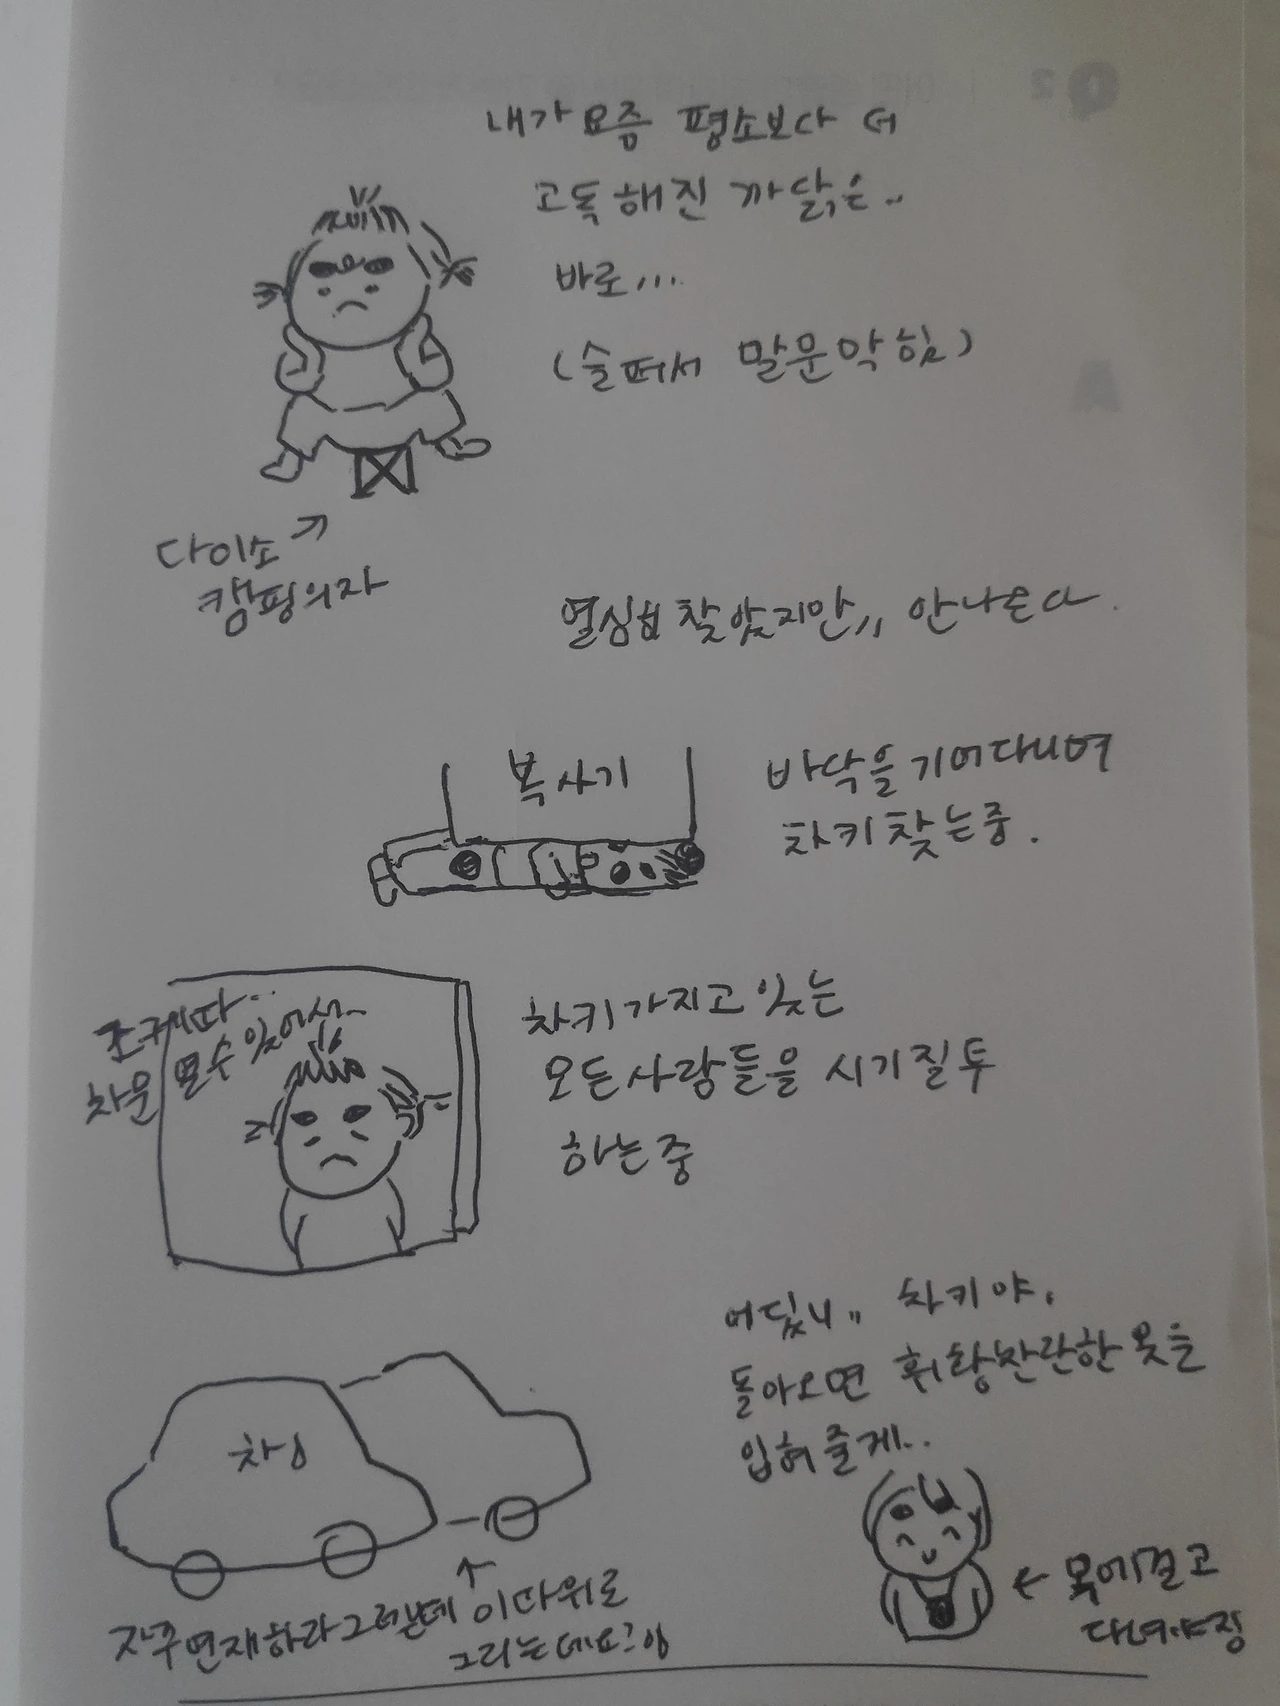 내가 요즘 평소보다 더
고독해진 까닭은..
바로...
(슬퍼서 말문막힘)
다이소
캠핑의자
열심히 찾았지만,, 안나온다.
복사기
바닥을 기어다니며
차키찾는중.
차키가지고 있는
모든사람들을 시기질투
하는중
차문 열수있어서..
어딨니.. 차키야.
돌아오면 휘황찬란한 옷을
입혀줄게..
자주연재하라그랬는데 이따위로
그리는데요?
← 목에걸고
다녀야징